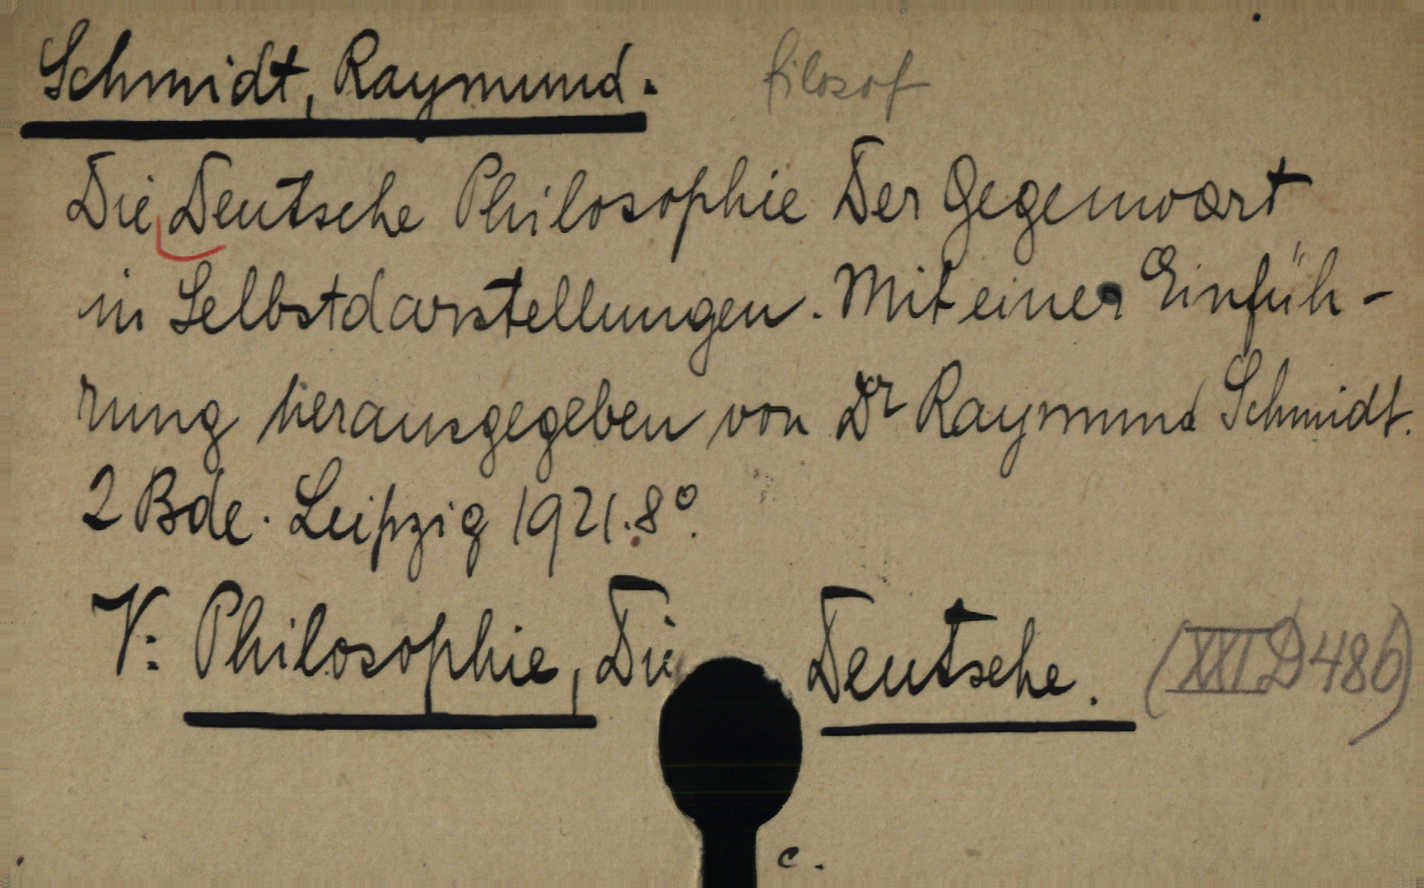 Schmidt, Raymund. filosof
Die Deutsche Philosophie Der Gegenwart
in Selbstdarstellungen. Mit einer Einfüh-
rung herausgegeben von Dr Raymund Schmidt.
2 Bde. Leipzig 1921. 8°.
V: Philosophie, Die Deutsche. (XXI D 486)
c.